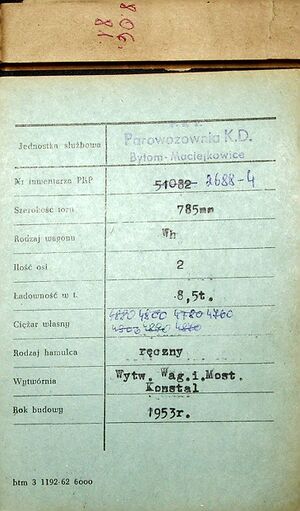 8.06.
81
P.K.P.
Parowozownia K.D.
Bytom-Maciejkowice
Jednostka służbowa
Nr inwentarza PKP 51082 2688-4
Szerokość toru 785mm
Rodzaj wagonu Wh
Ilość osi 2
Ładowność w t. 8,5t.
4820 4800 4780 4760
Ciężar własny
Rodzaj hamulca ręczny
Wytwórnia Wytw. Wag.i.Most.
Konstal
Rok budowy 1953r.
btm 3 1192-62 6000